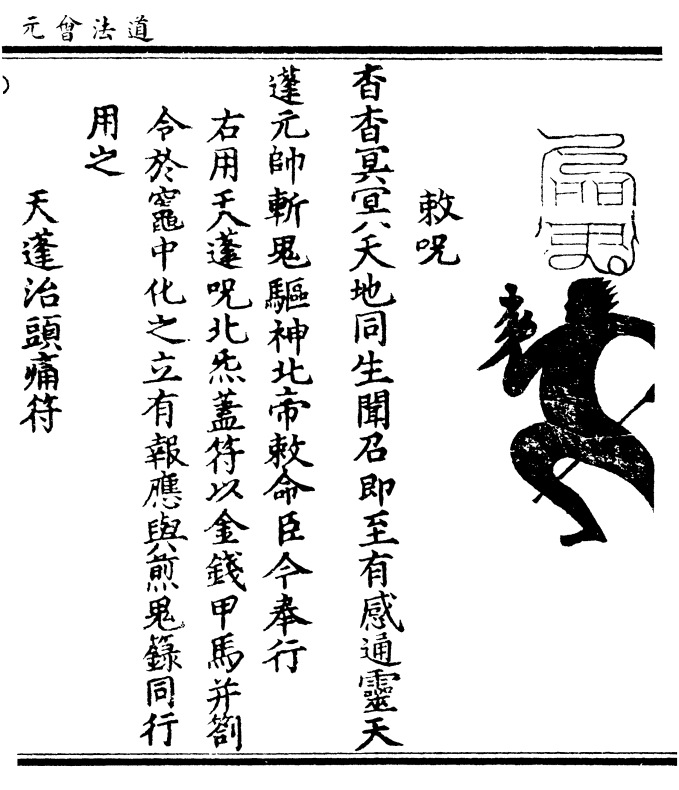 道法會元
敕呪
杳杳冥冥天地同生聞召即至有感通靈天
蓬元帥斬鬼驅神北帝敕命臣今奉行
右用天蓬呪北炁蓋符以金錢甲馬并劄
令於竈中化之立有報應與煎鬼籙同行
用之
天蓬治頭痛符